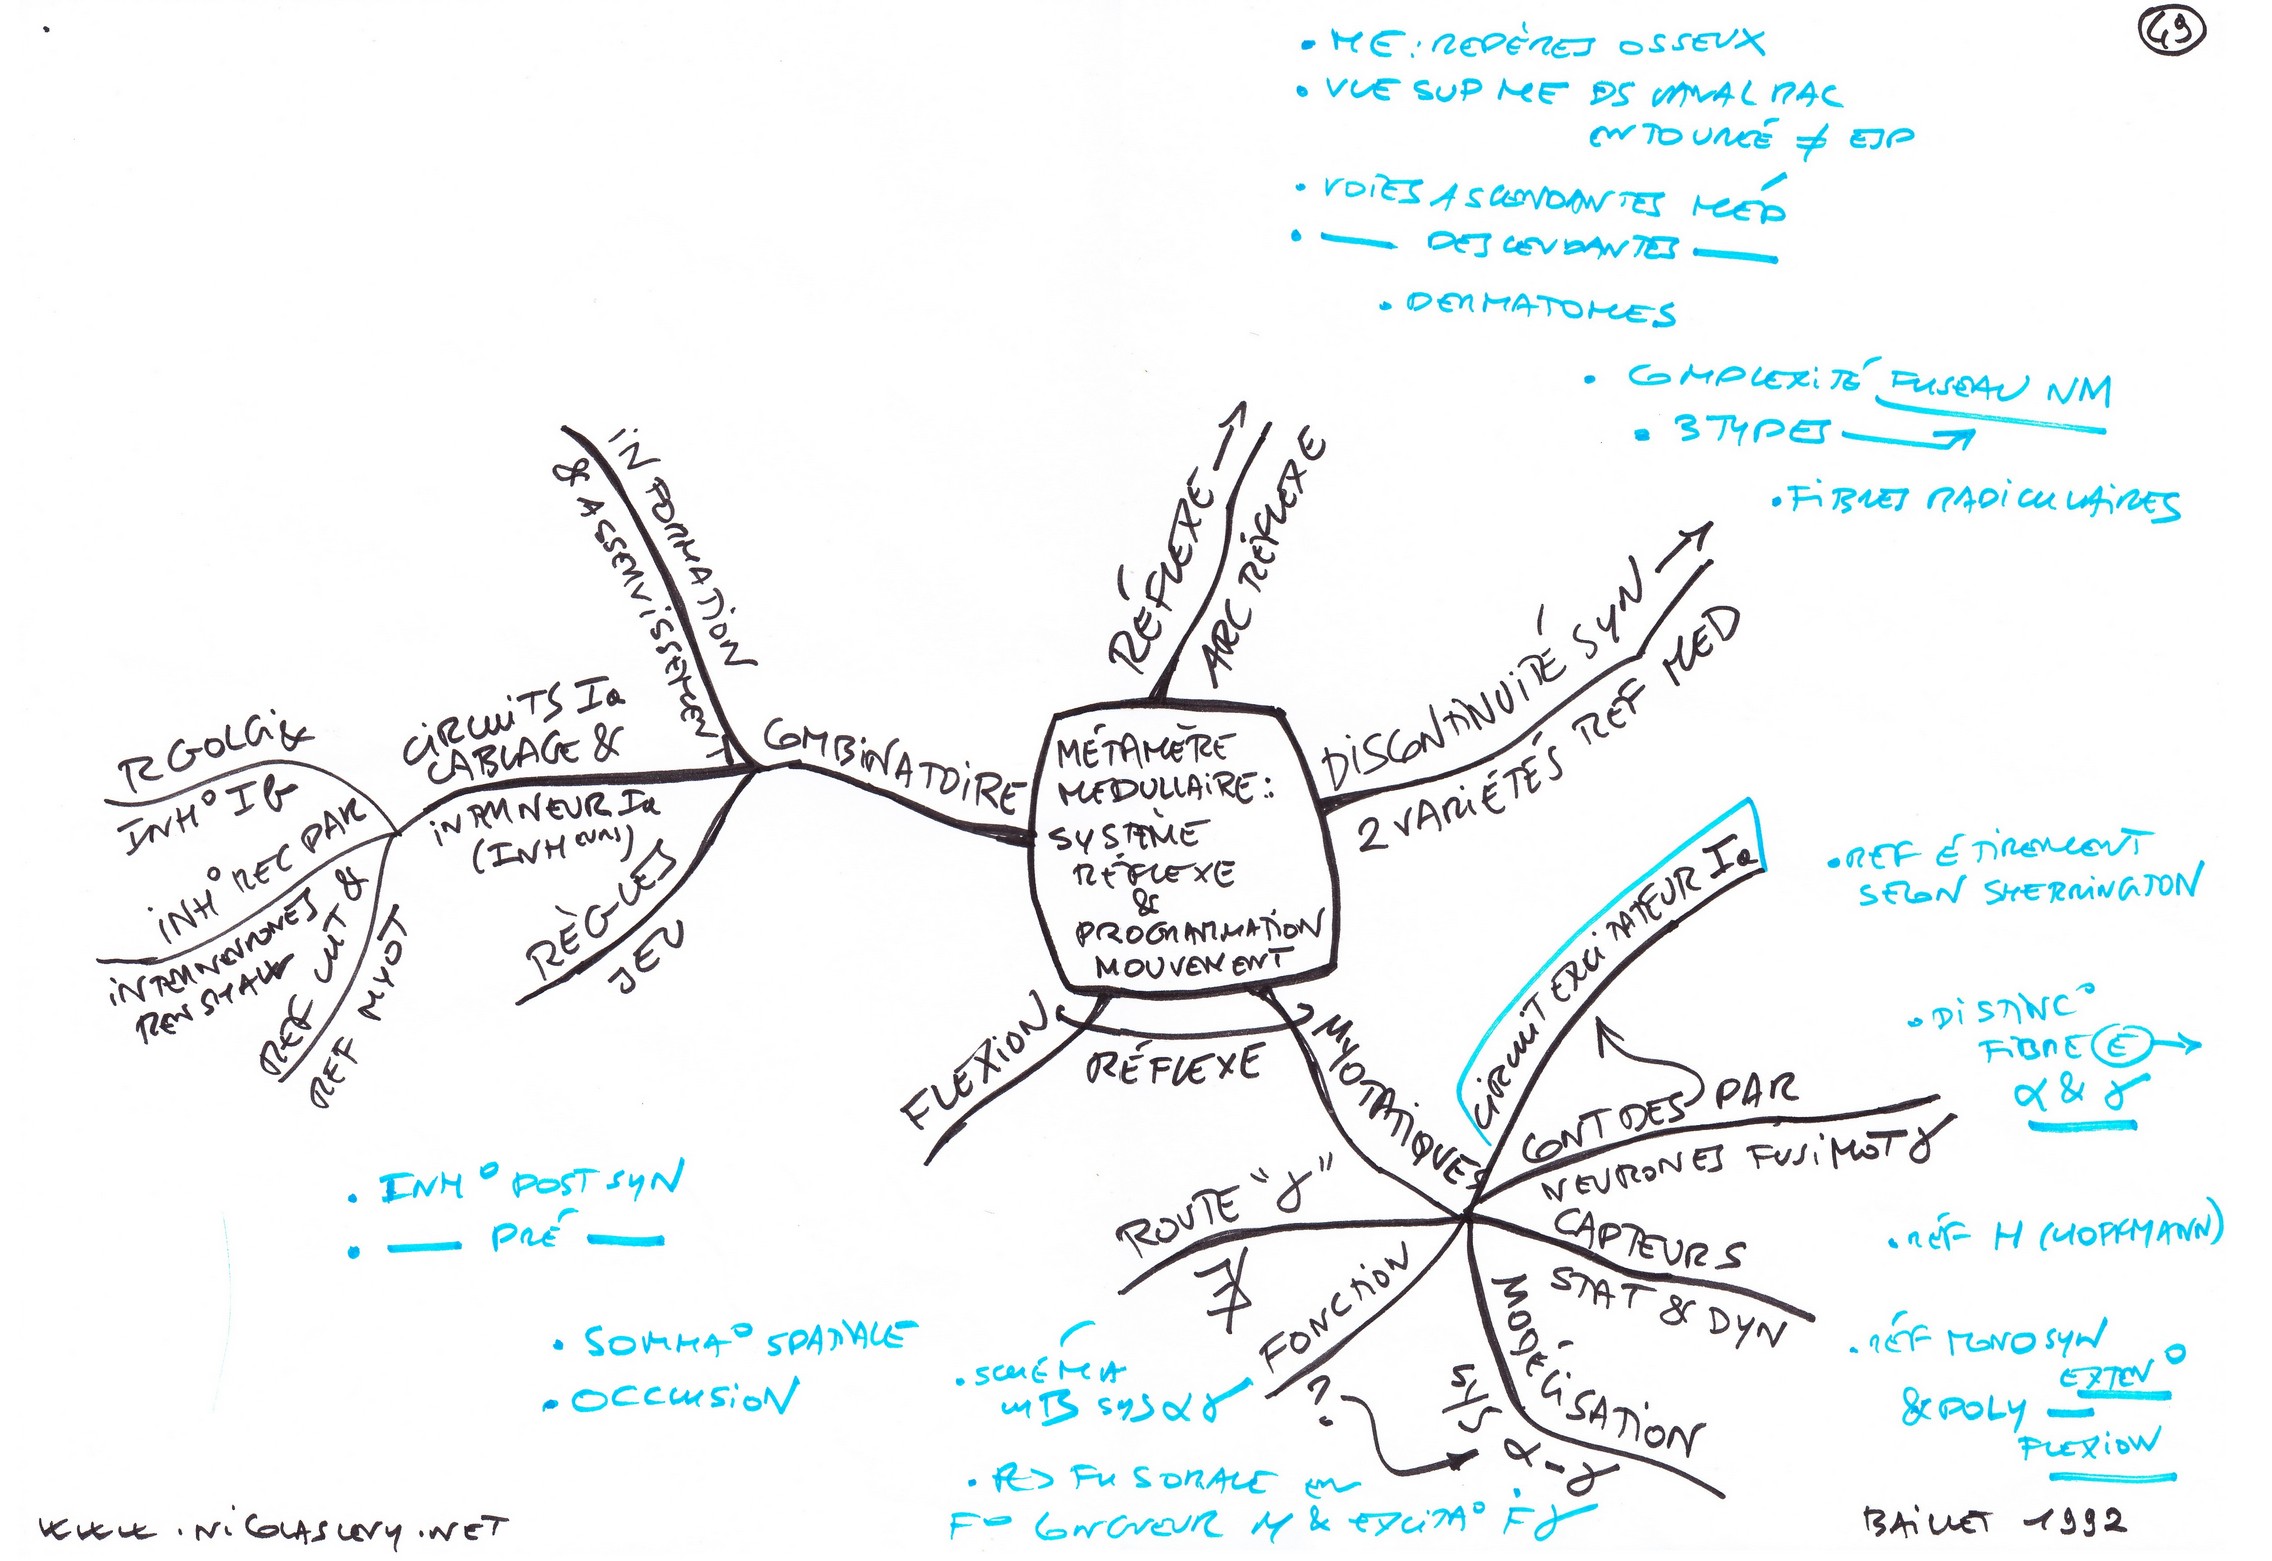 49
• ME : REPÈRES OSSEUX
• VUE SUP ME DS CANAL RAC
ENTOURÉ ≠ ESP
• VOIES ASCENDANTES MÉD
• — DESCENDANTES —
• DERMATOMES
• COMPLEXITÉ FUSEAU NM
• 3 TYPES →
• FIBRES RADICULAIRES
INFORMATION
& ASSERVISSEMENT
RÉFLEXE →
ARC RÉFLEXE
DISCONTINUITÉ SYN →
2 VARIÉTÉS REF MED
CIRCUITS Ia
CABLAGE &
INTERNEUR Ia
(INH)
COMBINATOIRE
R GOLGI &
INH° Ib
INH° REC PAR
INTERNEURONES
RENSHAW
REF CUT &
REF MYOT
RÈGLES
JEU
MÉTAMÈRE
MEDULLAIRE :
SYSTÈME
RÉFLEXE
&
PROGRAMMATION
MOUVEMENT
FLEXION
RÉFLEXE
MYOTATIQUES
CIRCUIT EXCITATEUR Ia
CONT DES PAR
NEURONES FUSIMOT γ
CAPTEURS
STAT & DYN
MODÉLISATION
SYS
α - γ
FONCTION
?
ROUTE "γ"
• REF ÉTIREMENT
SELON SHERRINGTON
• DISTINC°
FIBRE E →
α & γ
• RÉF H (HOFFMANN)
• RÉF MONOSYN
EXTEN°
& POLY —
FLEXION
• INH° POST SYN
• — PRÉ —
• SOMMA° SPATIALE
• OCCLUSION
• SCHÉMA
SYS α γ
• RÉ FUSORALE EN
F° LONGUEUR M & EXCITA° F γ
WWW.NICOLASLEVY.NET
BAILLET 1992